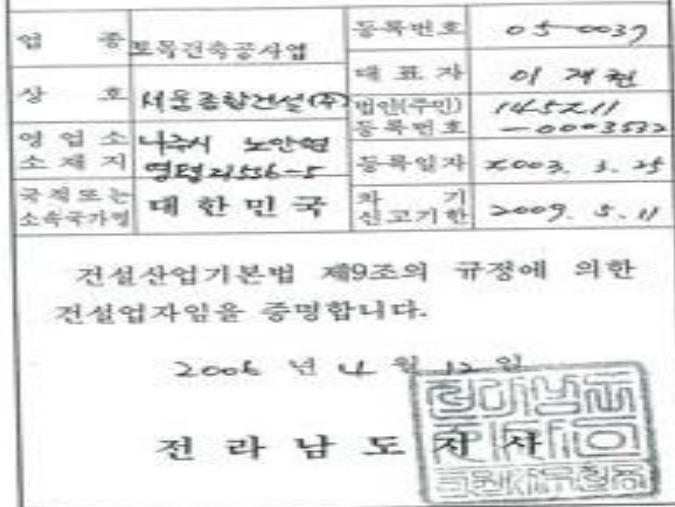 업 종 토목건축공사업 등록번호 05-0039
상 호 서운종합건설(주) 대 표 자
법인(주민)등록번호 145211-0003532
영업소 소재지 나주시 노안면
등록일자 2003. 3. 25
국적또는 소속국가명 대한민국 차기 신고기한 2009. 5. 11
건설산업기본법 제9조의 규정에 의한
건설업자임을 증명합니다.
2006 년 4 월 12 일
전라남도지사